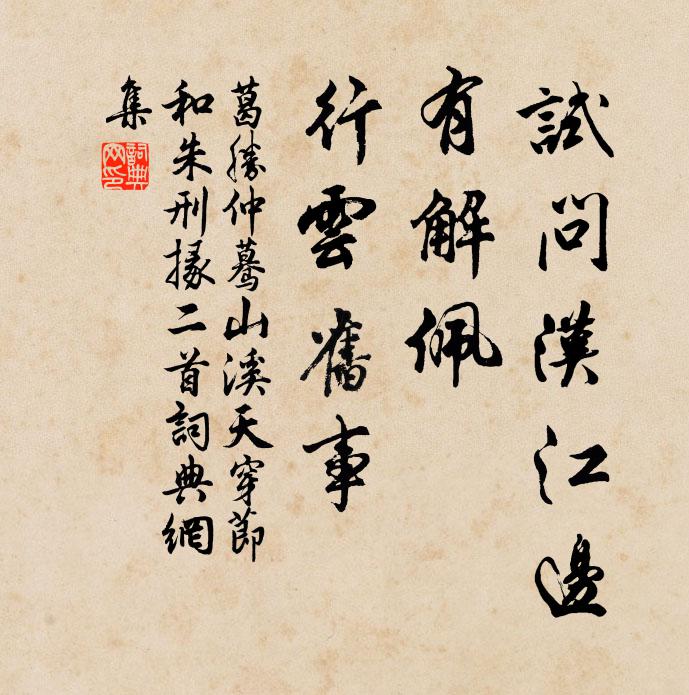 試問漢江邊
有解佩
行雲舊事
葛勝仲驀山溪天穿節
和朱刑掾二首詞典網
集
詞典
网印